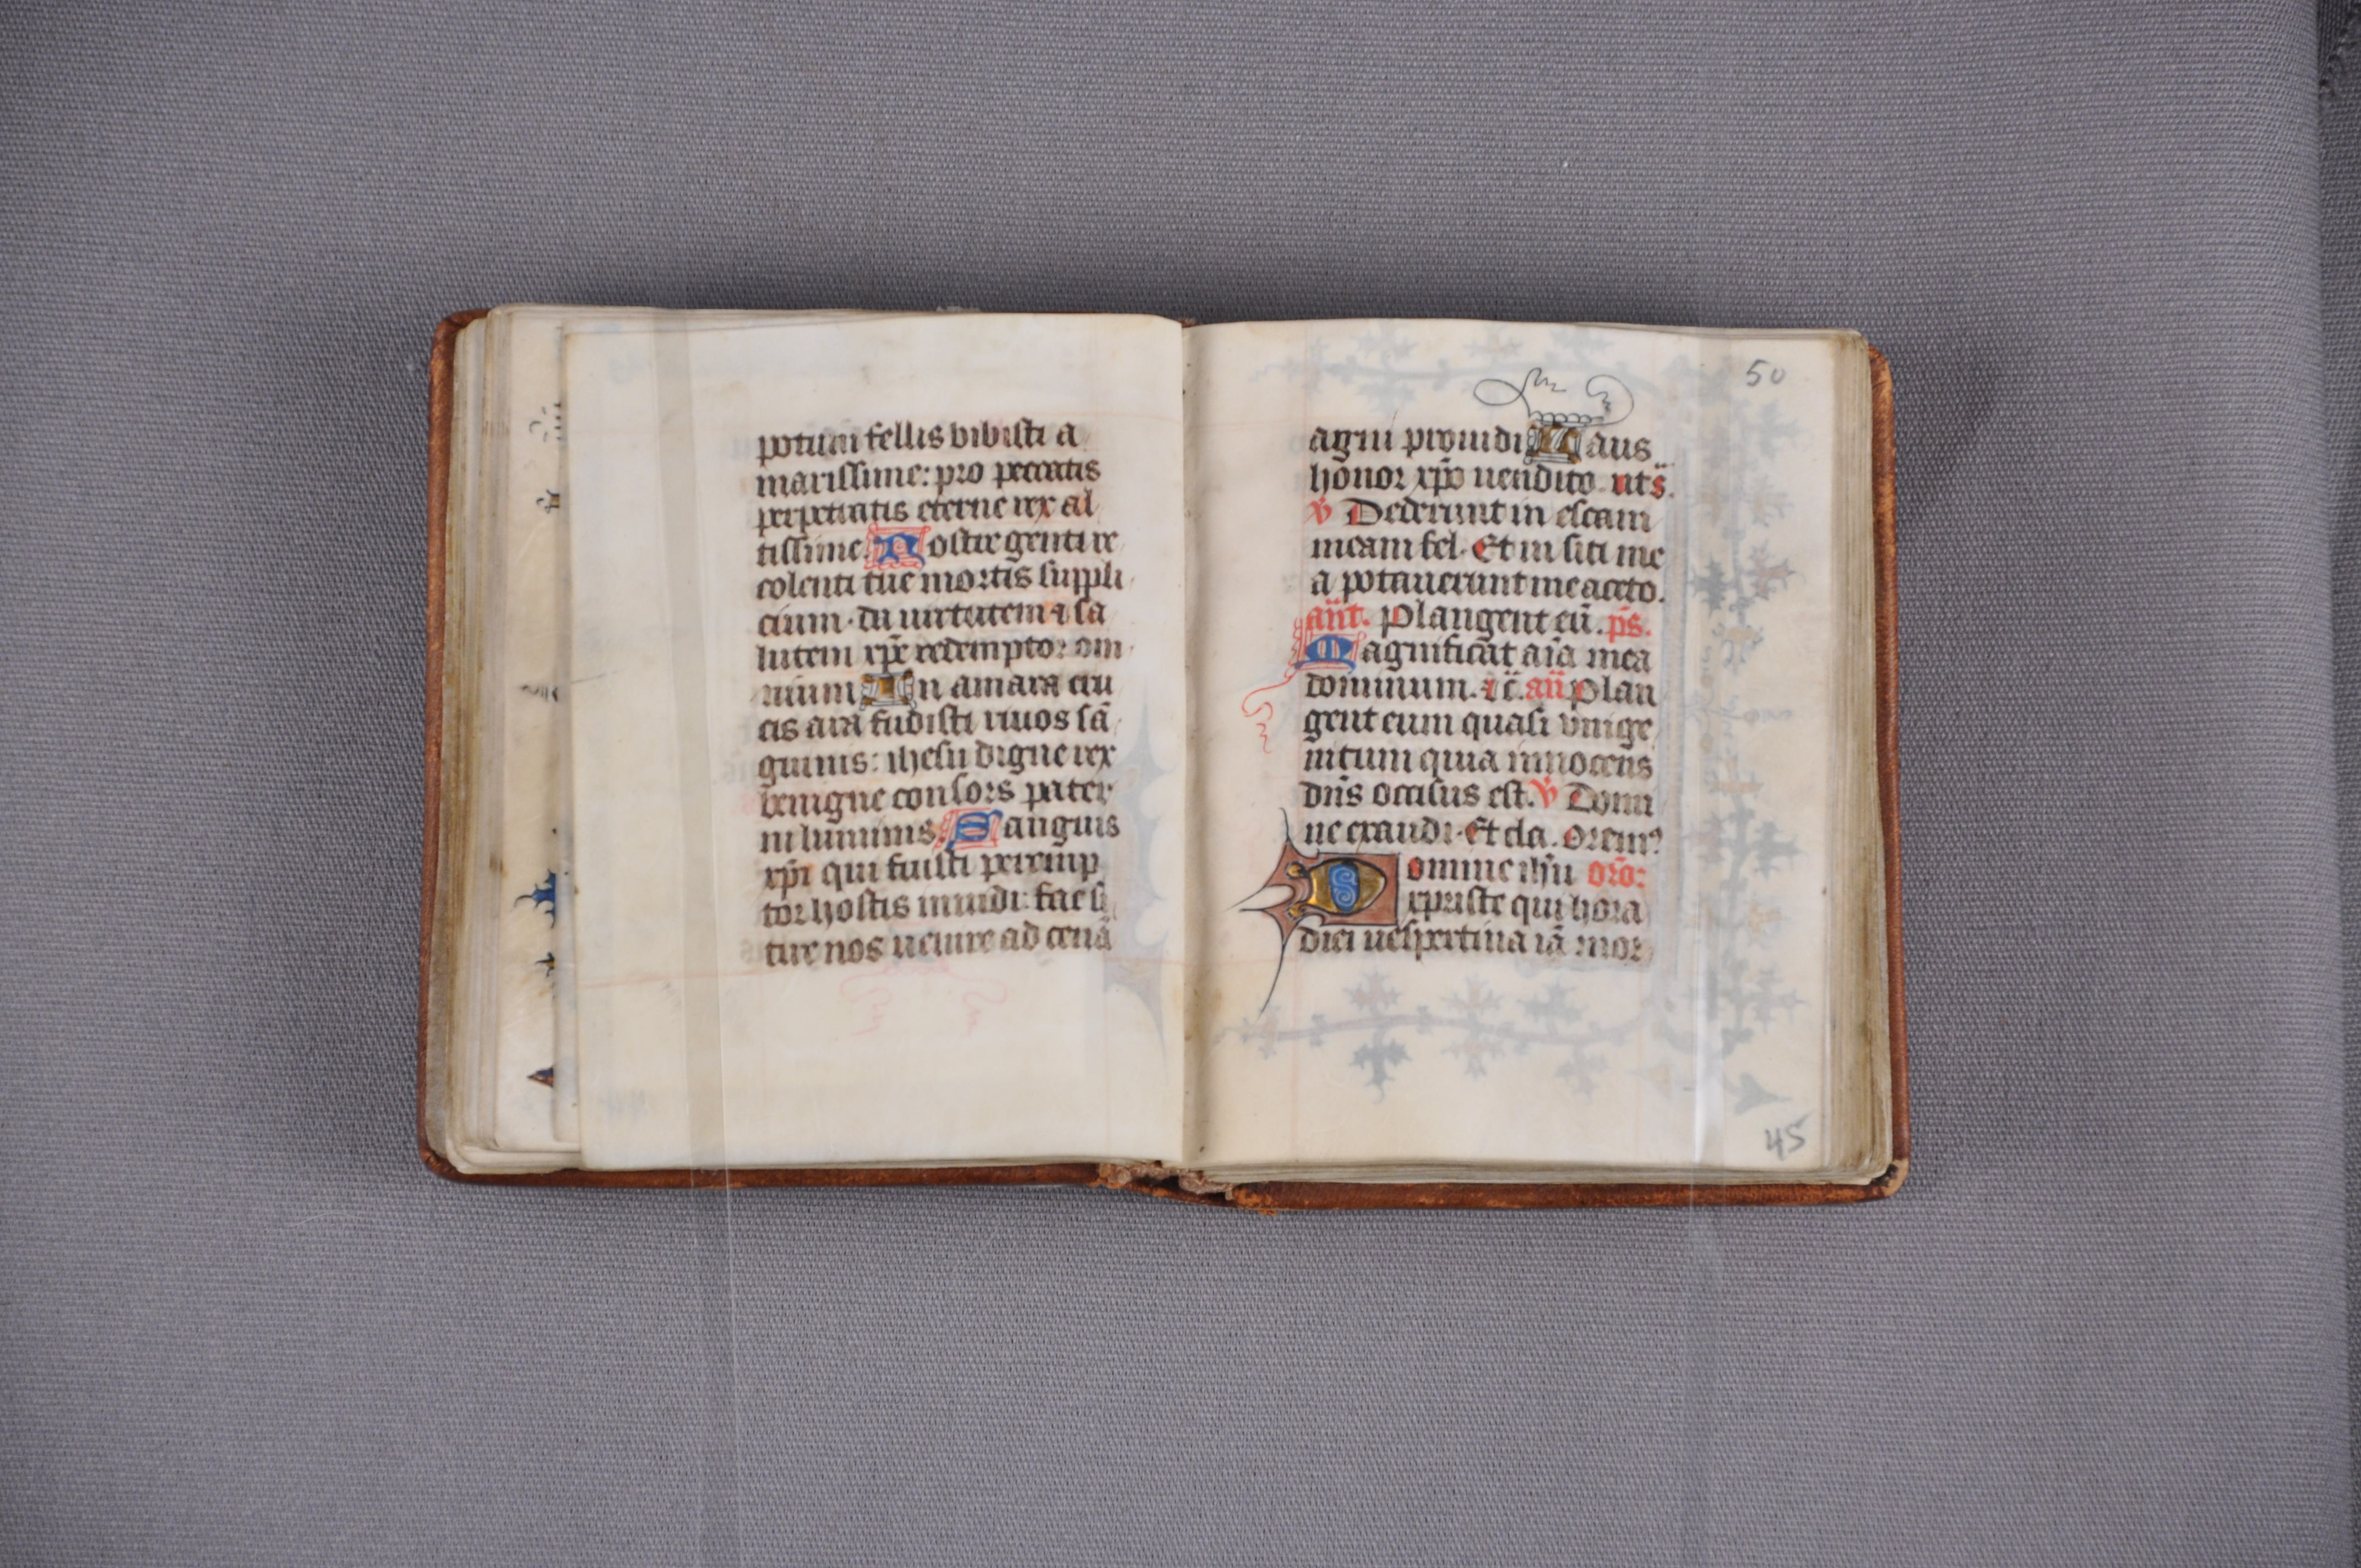 potum fellis bibisti a
marissime: pro peccatis
perpetratis eterne rex al
tissime. Nostre genti re
colenti tue mortis suppli
cium. da uirtutem ⁊ sa
lutem xp̄e redemptor om
nium In amara cru
cis ara fudisti riuos sā
guinis: ihesu digne rex
benigne consors pater
ni luminis. Sanguis
xp̄i qui fuisti peremp
tor hostis mundi: fac si
tire nos uenire ad cenā
50
agni prouidi Laus
honor xp̄o uendito. ut s̄.
v̄ Dederunt in escam
meam fel. Et in siti me
a potauerunt me aceto.
añt. Plangent eū. p̄s.
Magnificat aīa mea
dominum. ⁊ c̄. añ Plan
gent eum quasi vnige
nitum quia innocens
dn̄s occisus est. v̄ Domi
ne exaudi. Et cla. Oremꝰ
Domine ihū orō:
xpriste qui hora
diei uespertina iā mor
45